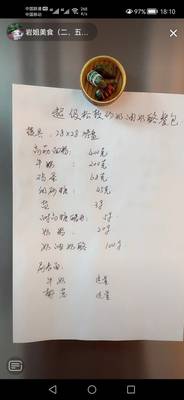 中国移动
中国移动
18:10
岩姐美食（二、五...
超级松软的奶油奶酪餐包
模具：28×28烤盘
高筋面粉：400克
牛奶：200克
鸡蛋：68克
细砂糖：45克
盐：3克
耐高糖酵母：5克
奶粉：20克
奶油奶酪：100克
刷表面：
牛奶 适量